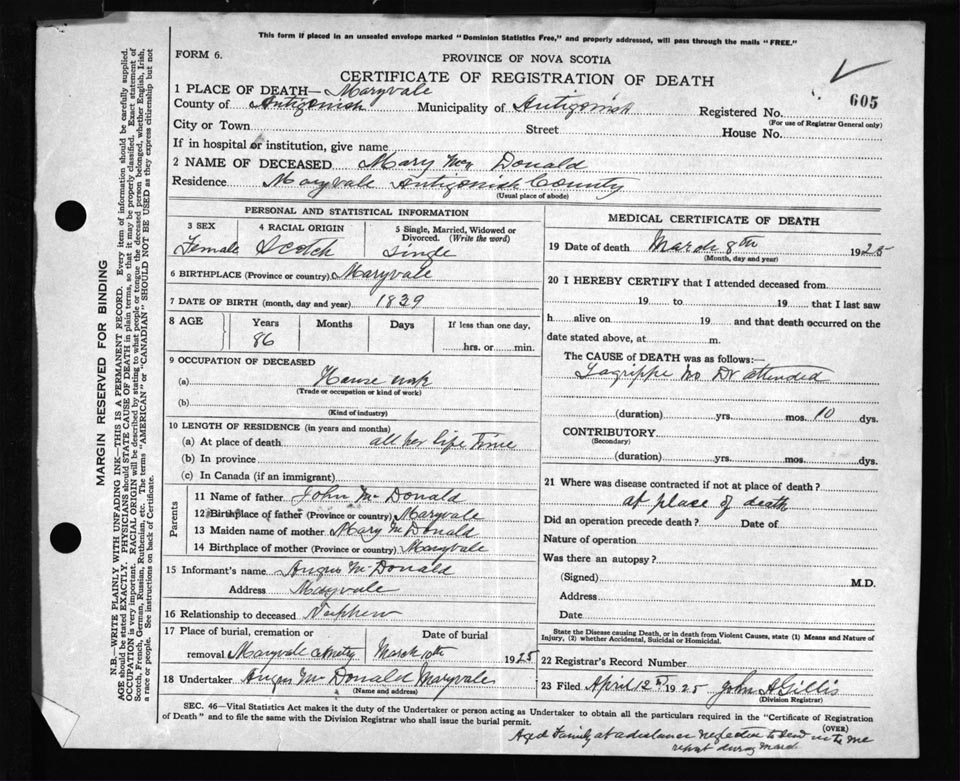 This form if placed in an unsealed envelope marked "Dominion Statistics Free," and properly addressed, will pass through the mails "FREE."
FORM 6.
PROVINCE OF NOVA SCOTIA
CERTIFICATE OF REGISTRATION OF DEATH
1 PLACE OF DEATH— Maryvale
County of Antigonish Municipality of Antigonish Registered No. 605
(For use of Registrar General only)
City or Town Street House No.
If in hospital or institution, give name
2 NAME OF DECEASED Mary Mc Donald
Residence Maryvale Antigonish County
(Usual place of abode)
PERSONAL AND STATISTICAL INFORMATION
3 SEX 4 RACIAL ORIGIN 5 Single, Married, Widowed or Divorced. (Write the word)
Female Scotch Single
6 BIRTHPLACE (Province or country) Maryvale
7 DATE OF BIRTH (month, day and year) 1839
8 AGE Years Months Days If less than one day,
86 hrs. or min.
9 OCCUPATION OF DECEASED
(a) House work
(Trade or occupation or kind of work)
(b)
(Kind of industry)
10 LENGTH OF RESIDENCE (in years and months)
(a) At place of death all her life time
(b) In province
(c) In Canada (if an immigrant)
Parents
11 Name of father John Mc Donald
12 Birthplace of father (Province or country) Maryvale
13 Maiden name of mother Mary McDonald
14 Birthplace of mother (Province or country) Maryvale
15 Informant's name Angus McDonald
Address Maryvale
16 Relationship to deceased Nephew
17 Place of burial, cremation or Date of burial
removal Maryvale March 10th 1925
18 Undertaker Angus Mc Donald Maryvale
(Name and address)
MEDICAL CERTIFICATE OF DEATH
19 Date of death March 8th 1925
(Month, day and year)
20 I HEREBY CERTIFY that I attended deceased from
19 to 19 that I last saw
h alive on 19 and that death occurred on the
date stated above, at m.
The CAUSE of DEATH was as follows:—
Lagrippe No Dr attended
(duration) yrs. mos. 10 dys.
CONTRIBUTORY
(Secondary)
(duration) yrs. mos. dys.
21 Where was disease contracted if not at place of death?
at place of death
Did an operation precede death? Date of
Nature of operation
Was there an autopsy?
(Signed) M.D.
Address
Date
State the Disease causing Death, or in death from Violent Causes, state (1) Means and Nature of
Injury, (2) whether Accidental, Suicidal or Homicidal.
22 Registrar's Record Number
23 Filed April 12 1925 John A Gillis
(Division Registrar)
SEC. 46—Vital Statistics Act makes it the duty of the Undertaker or person acting as Undertaker to obtain all the particulars required in the "Certificate of Registration
of Death" and to file the same with the Division Registrar who shall issue the burial permit.
(OVER)
Aged Family at a distance neglected to send me
report during March
MARGIN RESERVED FOR BINDING
N.B.—WRITE PLAINLY WITH UNFADING INK—THIS IS A PERMANENT RECORD. Every item of information should be carefully supplied.
AGE should be stated EXACTLY. PHYSICIANS should STATE CAUSE OF DEATH in plain terms, so that it may be properly classified. Exact statement of
OCCUPATION is very important. RACIAL ORIGIN will be described by stating to what people or tongue the deceased person belonged, whether English, Irish,
Scotch, French, German, Russian, Ruthenian, etc. The terms "AMERICAN" or "CANADIAN" SHOULD NOT BE USED as they express citizenship but not
a race or people. See instructions on back of Certificate.